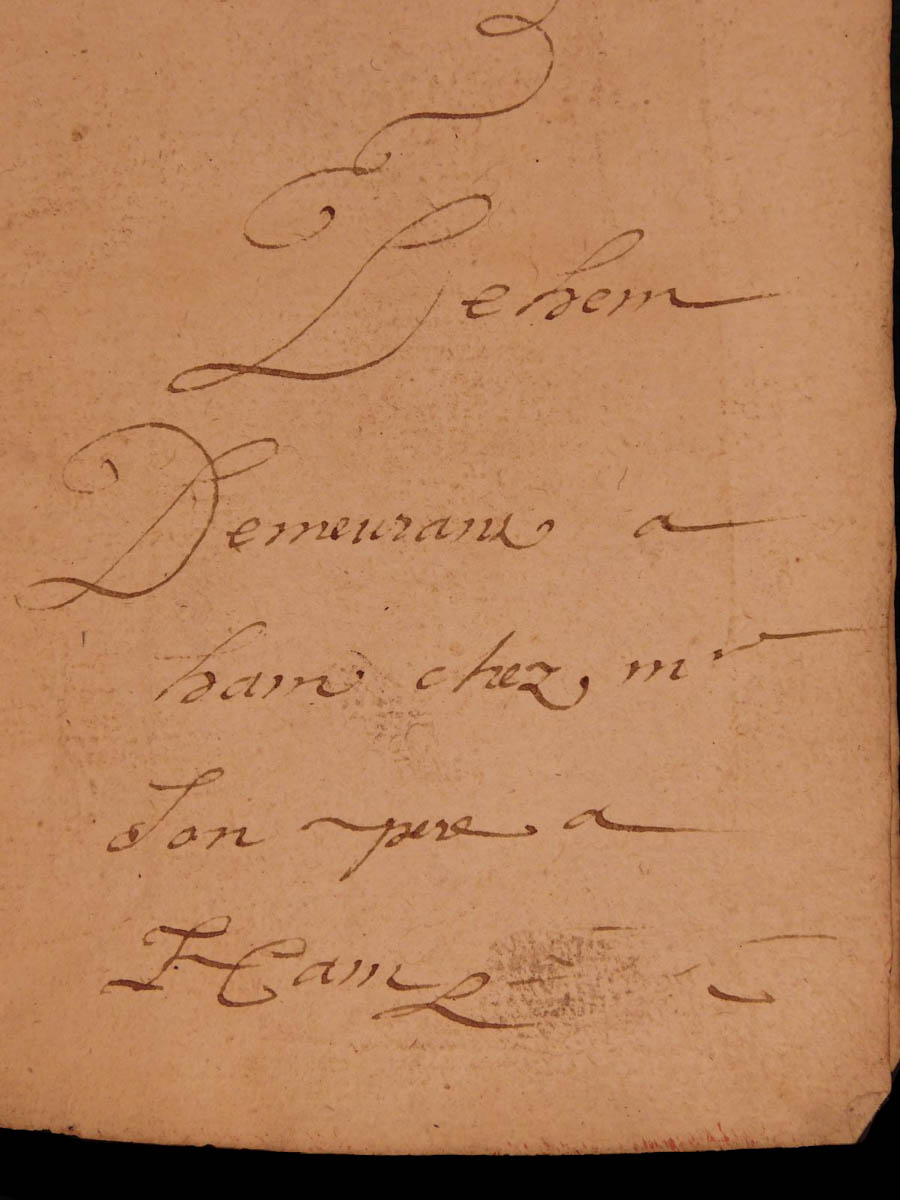 Lehem
Demeurant a
ham chez mr
Son pere a
Ham